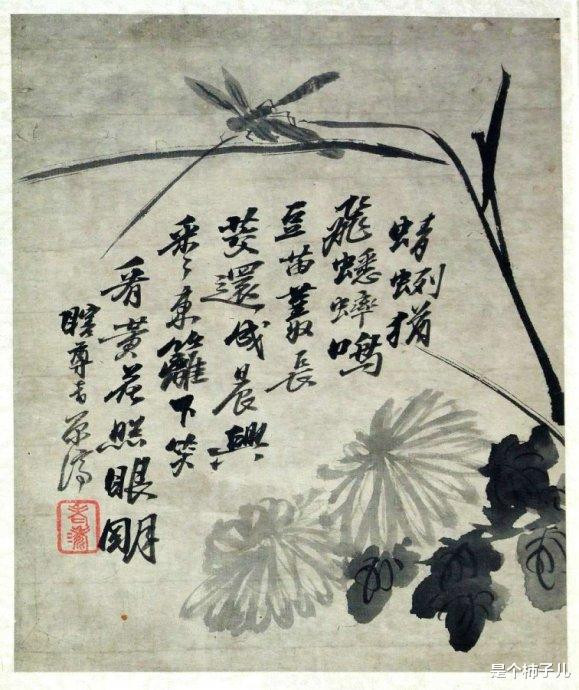 蜻蛚猶
飛蟋蟀鳴
豆苗叢長
芰還成晨興
采々東籬下笑
看黃花照眼明
瞎尊者原濟
是个柿子儿